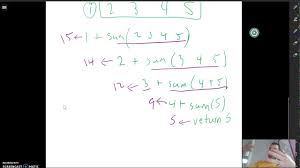 1 2 3 4 5
15 ← 1 + sum(2 3 4 5)
14 ← 2 + sum(3 4 5)
12 ← 3 + sum(4 5)
9 ← 4 + sum(5)
5 ← return 5
SCREENCAST